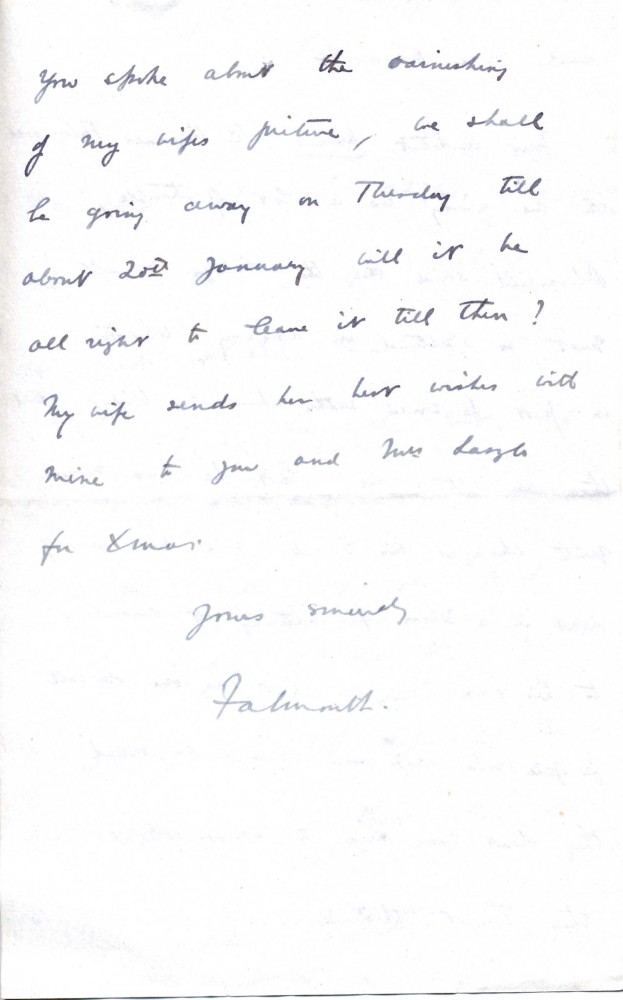 You spoke about the varnishing
of my wifes picture, we shall
be going away on Thursday till
about 20th January will it be
all right to leave it till then?
My wife sends her best wishes with
mine to you and Mrs Laszlo
for Xmas.
Yours sincerely
Falmouth.